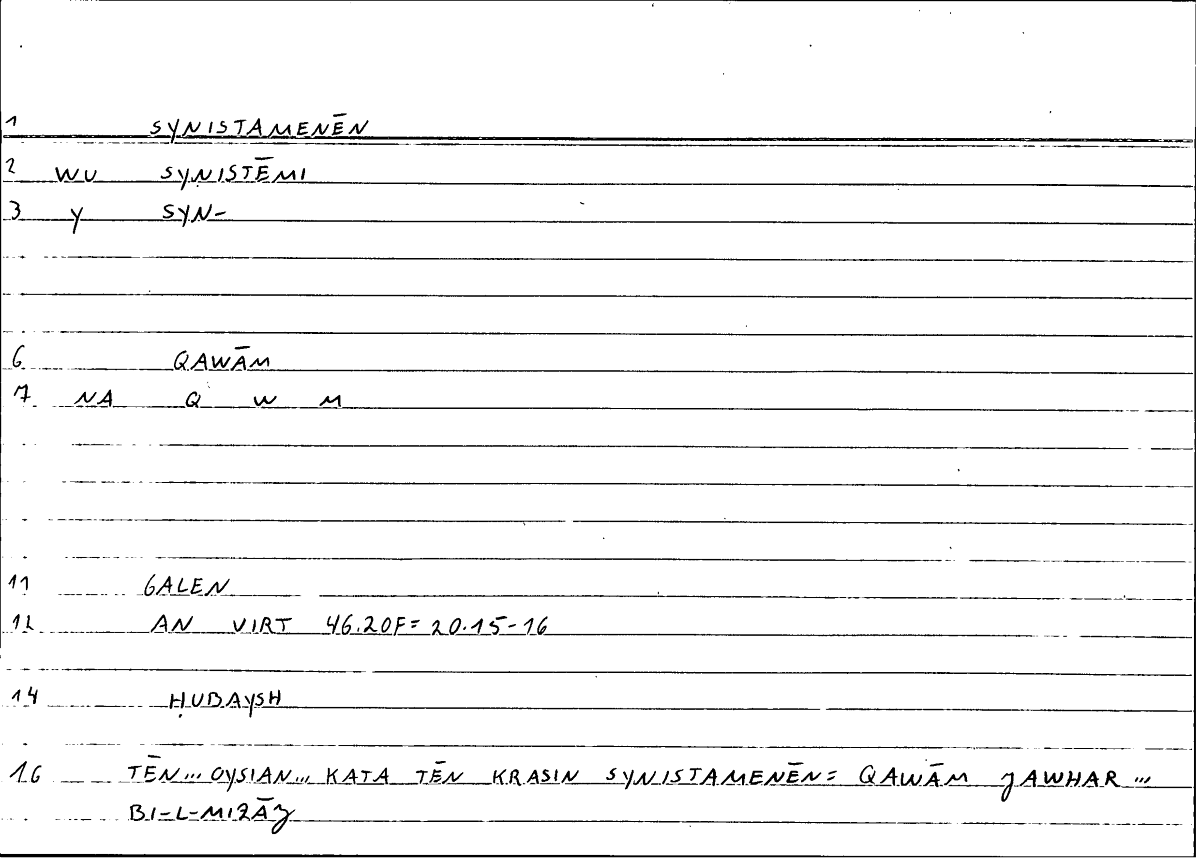 1 SYNISTAMENĒN
2 WU SYNISTĒMI
3 Y SYN-
6 QAWĀM
7 NA Q W M
11 GALEN
12 AN VIRT 46.20F= 20.15-16
14 ḤUBAYSH
16 TĒN... OYSIAN... KATA TĒN KRASIN SYNISTAMENĒN= QAWĀM JAWHAR ...
BI-L-MIZĀJ